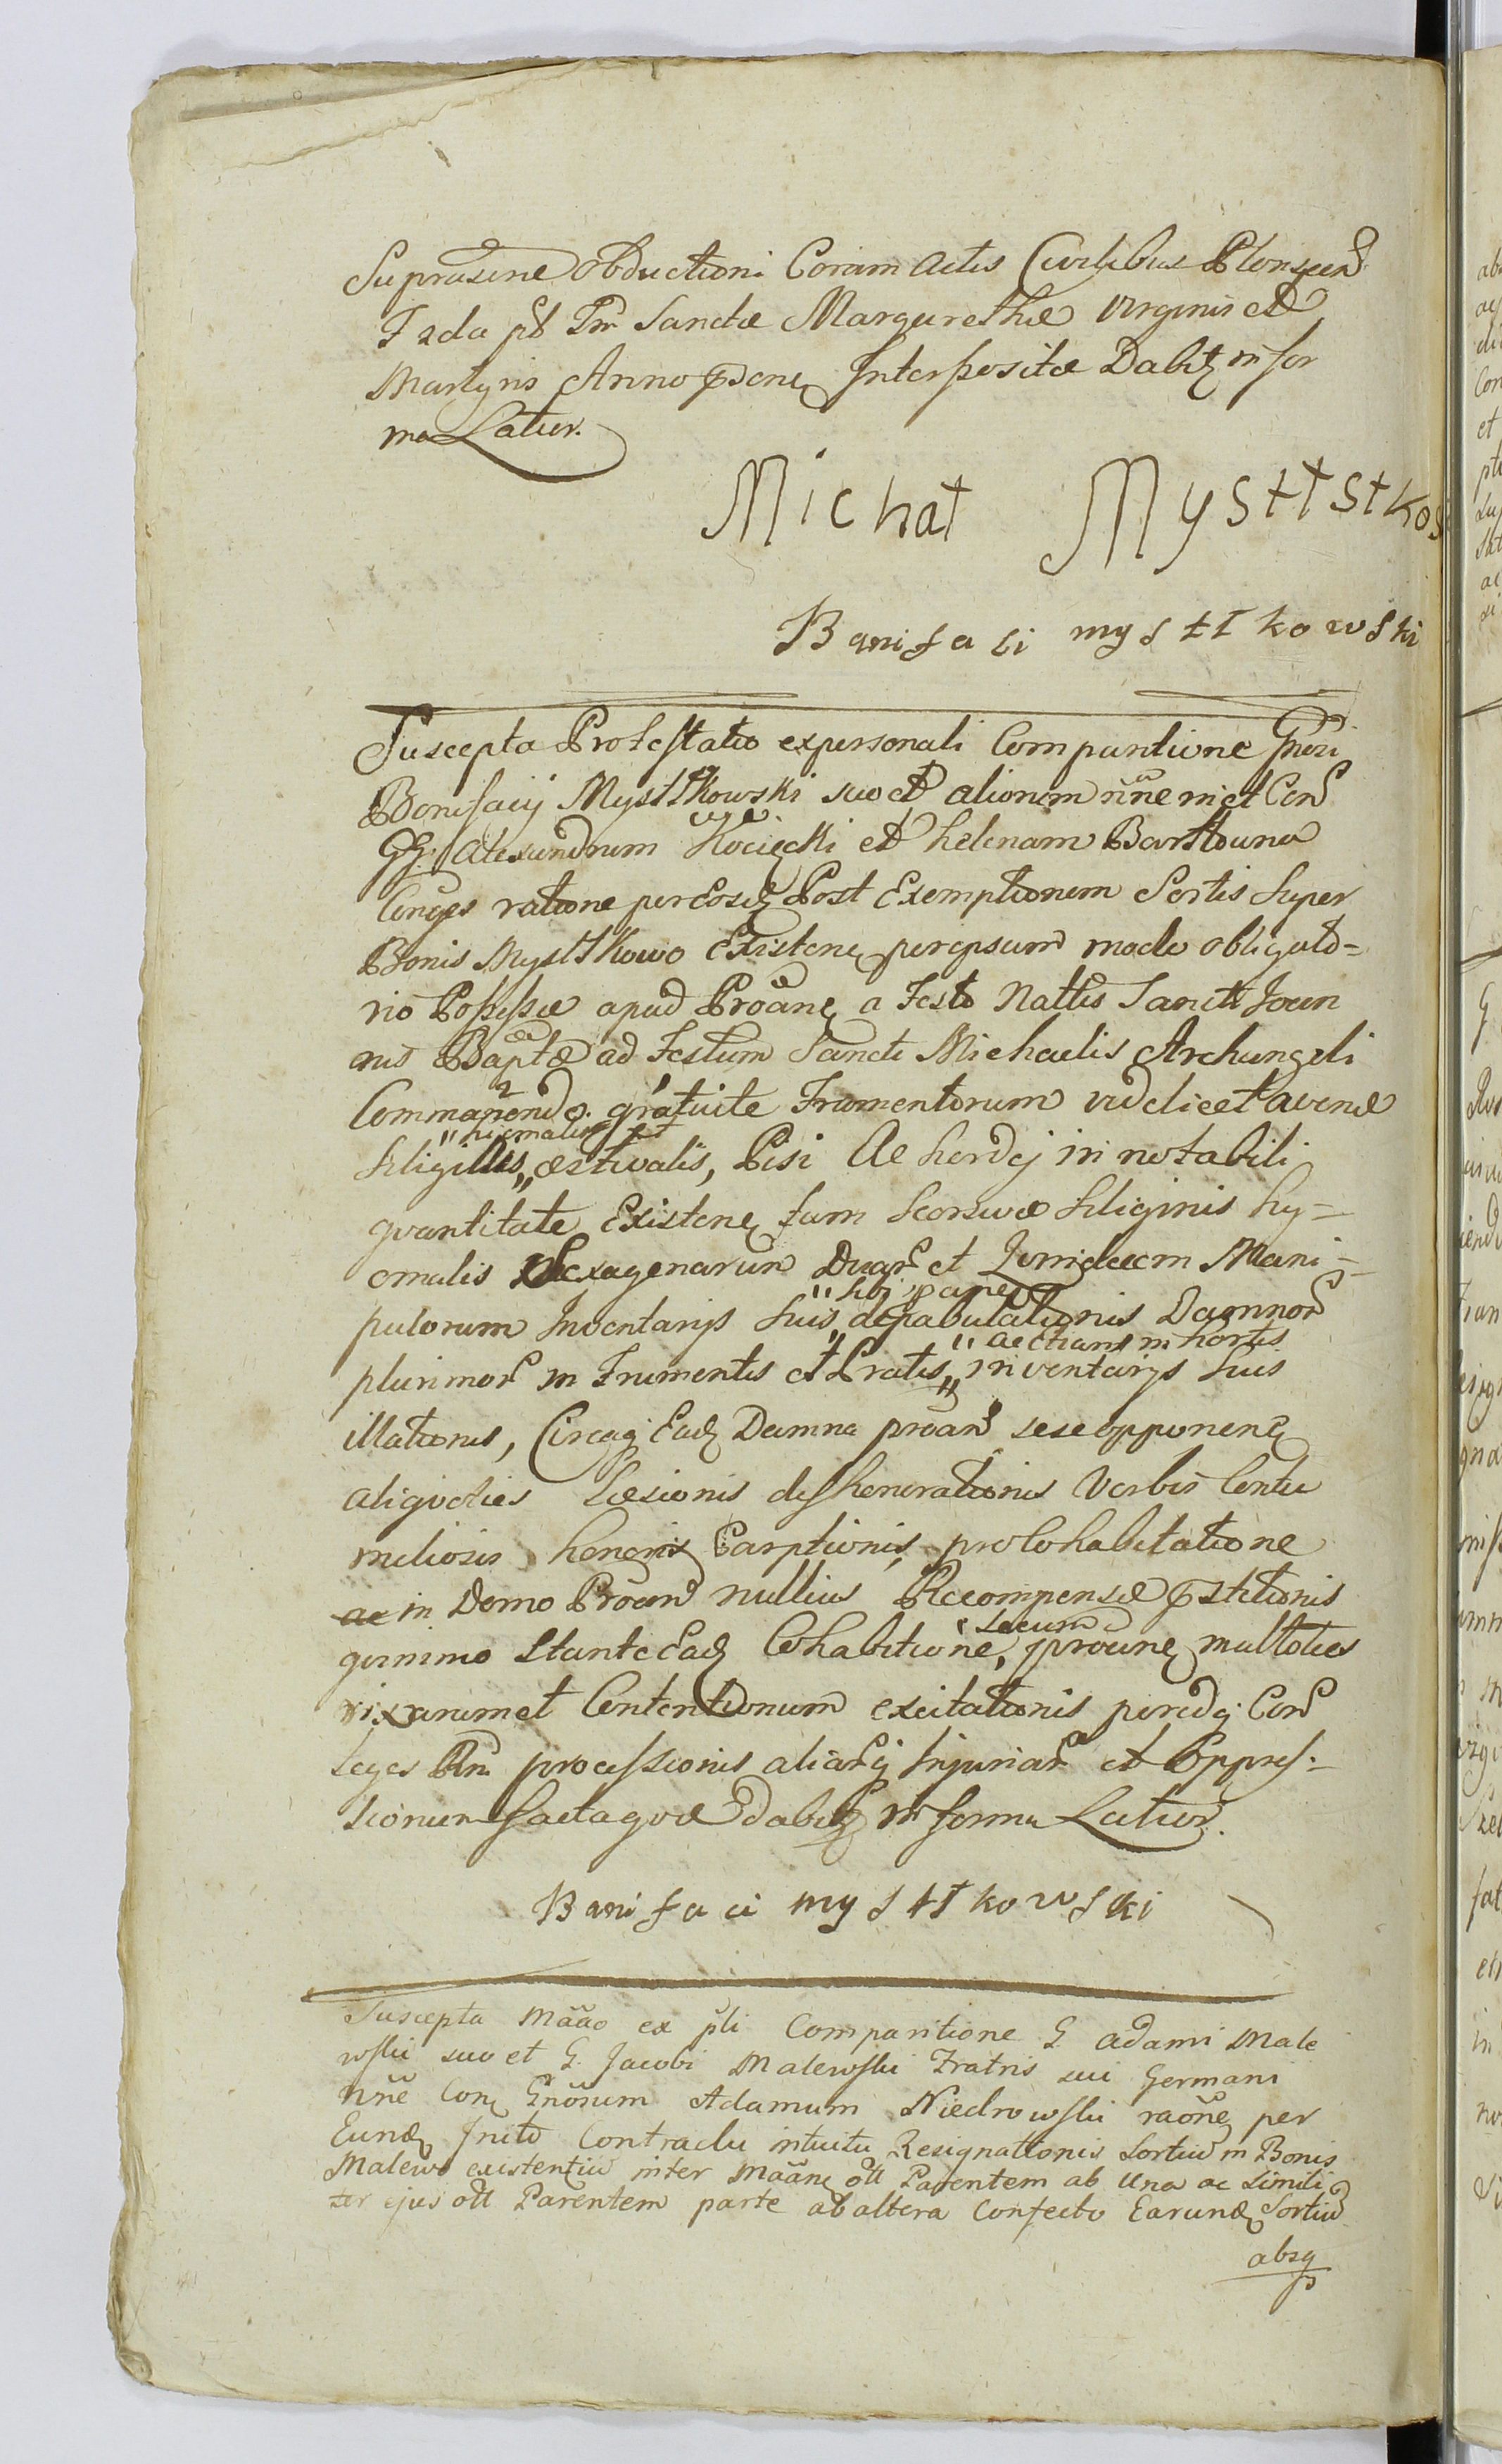 Suprascne obductioni Coram Actis Civilibus Plonscen
Frda pt Fm Sanctæ Margarethæ Virginis et
Martyris Anno Interpositæ Dabit in for
ma Latior.
Michał Mysttstkos
Banifaci mysttkowski
Suscepta Protestatio expersonali Comparitione Gnosi
Bonifacij Mysttkowski suo et aliorum nne met Con
GG. Alexandrum Kocięcki et helenam Barttowna
Conjges ratione per Eosd Post Exemptionem Sortis super
Bonis Mysttkowo Existene per ipsum modo obligato=
rio Possessæ apud Proane a Festo Nattis Sancti Joan
nis Baptæ ad Festum Sancti Michaelis Archangeli
Commanendo gratuite Frumentorum videlicet avenæ
" hiemalis et
siliginis„ æstivalis, Pisi Ac hordej in notabili
quantitate Existene tum Seorsivæ siliginis hy=
emalis Sexagenarum Duar et Quindecem Mani=
" sibi
pulorum Inventarijs suis„ depabulationis Damnor
" ac etiam in hortis
plurimor in Frumentis et Pratis„ inventarijs suis
illationis, Circaq Ead Damna proan sese opponene
aliquoties Læsionis dishonorationis Verbis Contu
meliosis honoris Carptionis, pro Cohabitatione
ac in Domo Proan nullius Recompensæ pstitionis
quinimo Stante Ead Cohabitione, proane multoties
secum
rixarum et Contentionum excitationis per edq Con
leges processionis aliarq Injuriar et Oppres=
sionum factaque dabit in forma Latior.
Banifaci mysttkowski
Suscepta Mããõ ex pli Comparitione G. Adami Male
wski suo et G. Jacobi Malewski Fratris sui Germani
nne Con Gnosum Adamum Niedrowski raone per
Eund Inito Contractu intuitu Resignationis Sortiu in Bonis
Malewo existentiu inter Maane ott Parentem ab una ac simili
ter ejus ott Parentem parte ab altera Confecto Earund Sortiu
absq